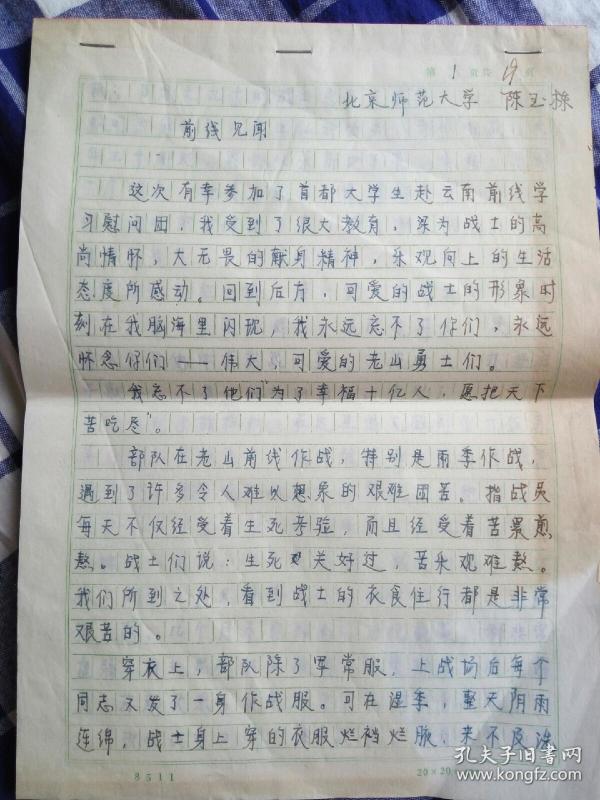 第 1 页共 19 页
北京师范大学 陈玉栋
前线见闻
这次有幸参加了首都大学生赴云南前线学
习慰问团，我受到了很大教育，深为战士的高
尚情怀，大无畏的献身精神，乐观向上的生活
态度所感动。回到后方，可爱的战士的形象时
刻在我脑海里闪现，我永远忘不了你们，永远
怀念你们——伟大，可爱的老山勇士们。
我忘不了他们"为了幸福十亿人，愿把天下
苦吃尽"。
部队在老山前线作战，特别是雨季作战，
遇到了许多令人难以想象的艰难困苦。指战员
每天不仅经受着生死考验，而且经受着苦累煎
熬。战士们说：生死关好过，苦乐观难熬。
我们所到之处，看到战士的衣食住行都是非常
艰苦的。
穿衣上，部队除了军常服，上战场后每个
同志又发了一身作战服。可在湿季，整天阴雨
连绵，战士身上穿的衣服烂裆烂腋，来不及洗
8511
20×20
孔夫子旧书网
www.kongfz.com